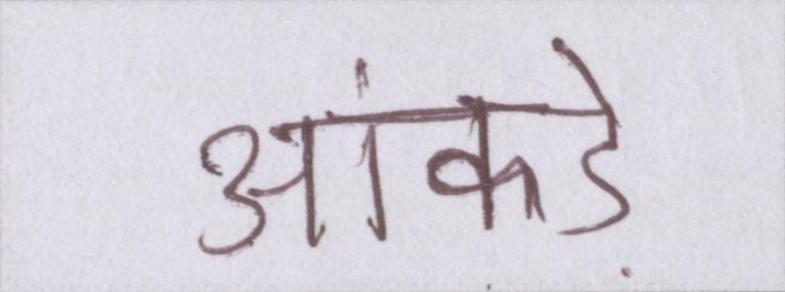 आंकड़े